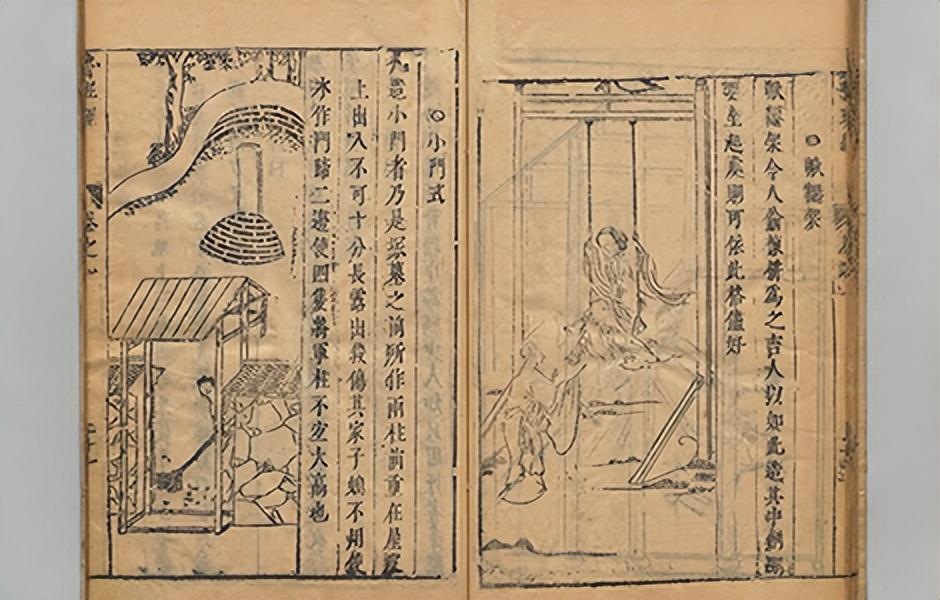 鞦韆架
鞦韆架今人偷棟栟爲之吉人以如此造其中創閒
要坐起處則可依此格儘好
小門式
凡造小門者乃是塚墓之前所作兩柱前重在屋皮
上出入不可十分長露出殺傷其家子媳不用使
木作門蹄二邊使四隻將軍柱不宜大高也
卷之